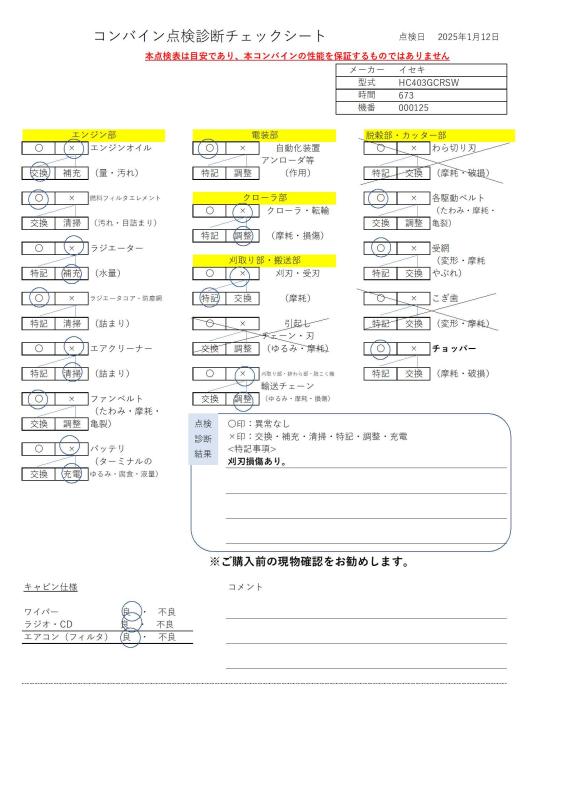 コンバイン点検診断チェックシート
点検日 2025年1月12日
本点検表は目安であり、本コンバインの性能を保証するものではありません
メーカー イセキ
型式 HC403GCRSW
時間 673
機番 000125
エンジン部
〇 × エンジンオイル
交換 補充 （量・汚れ）
〇 × 燃料フィルタエレメント
交換 清掃 （汚れ・目詰まり）
〇 × ラジエーター
特記 補充 （水量）
〇 × ラジエータコア・防塵網
特記 清掃 （詰まり）
〇 × エアクリーナー
特記 清掃 （詰まり）
〇 × ファンベルト
（たわみ・摩耗・
交換 調整 亀裂）
〇 × バッテリ
（ターミナルの
交換 充電 ゆるみ・腐食・液量）
電装部
〇 × 自動化装置
アンローダ等
特記 調整 （作用）
クローラ部
〇 × クローラ・転輪
特記 調整 （摩耗・損傷）
刈取り部・搬送部
〇 × 刈刃・受刃
特記 交換 （摩耗）
〇 × 引起し
チェーン・刃
交換 調整 （ゆるみ・摩耗）
〇 ×
輸送チェーン
交換 調整 （ゆるみ・摩耗・損傷）
脱穀部・カッター部
〇 × わら切り刃
特記 交換 （摩耗・破損）
〇 × 各駆動ベルト
（たわみ・摩耗・
交換 調整 亀裂）
〇 × 受網
（変形・摩耗
特記 交換 やぶれ）
〇 × こぎ歯
特記 交換 （変形・摩耗）
〇 × チョッパー
特記 交換 （摩耗・破損）
点検
診断
結果
〇印：異常なし
×印：交換・補充・清掃・特記・調整・充電
<特記事項>
刈刃損傷あり。
※ご購入前の現物確認をお勧めします。
キャビン仕様
ワイパー 良 ・ 不良
ラジオ・CD 良 ・ 不良
エアコン（フィルタ） 良 ・ 不良
コメント